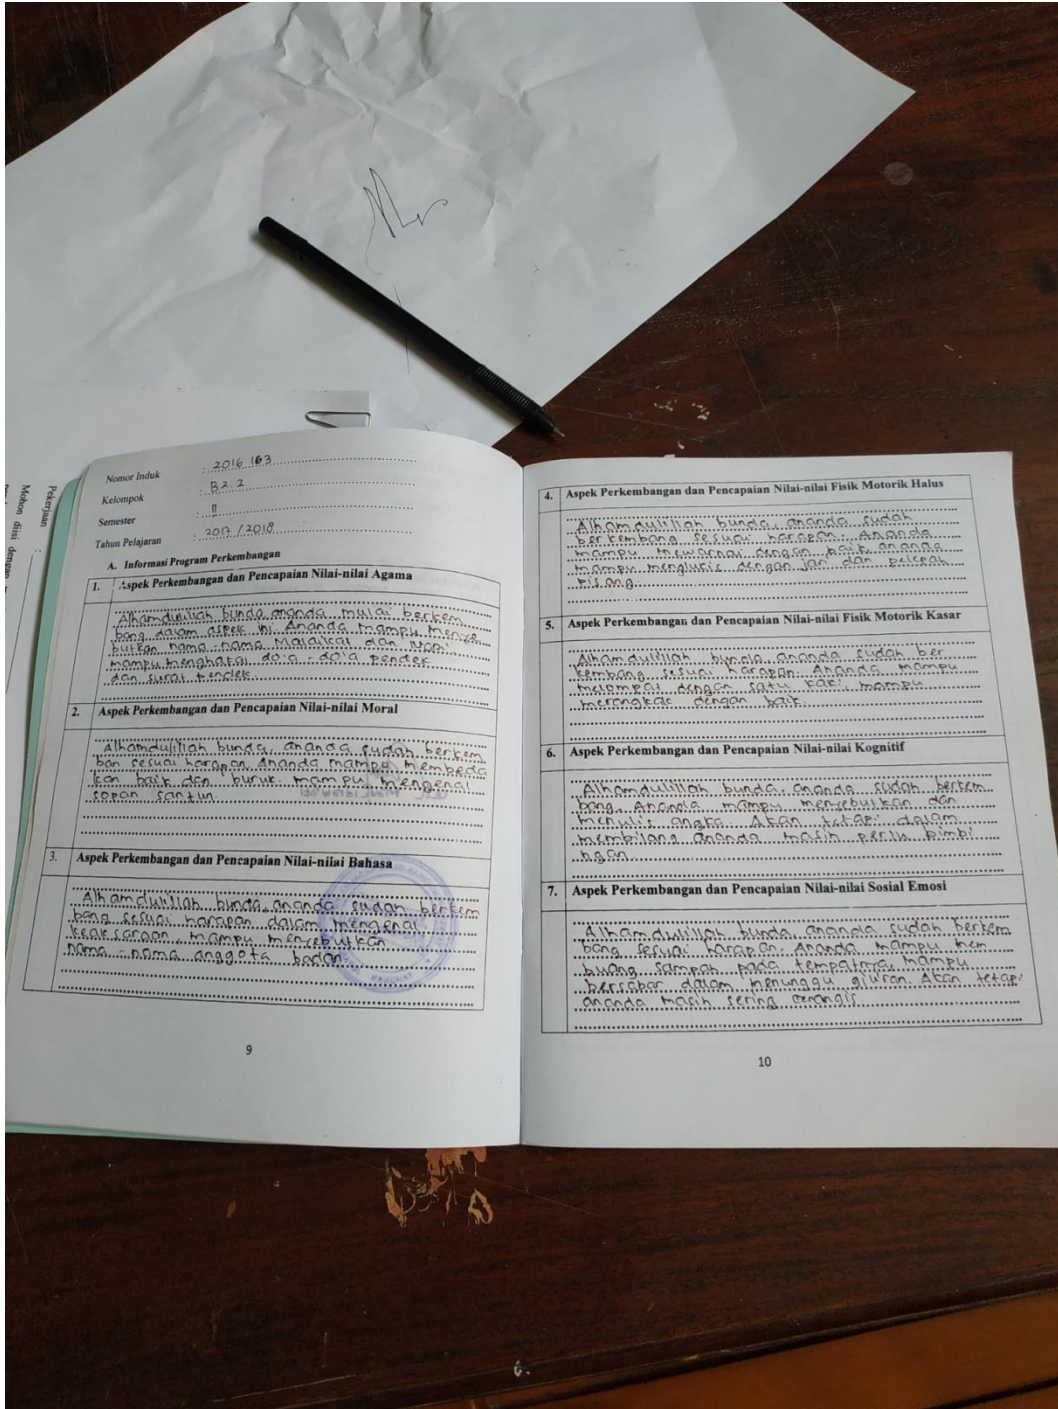 Pekerjaan :
Mohon diisi dengan
Nomor Induk : 2016 163
Kelompok : B2.2
Semester : II
Tahun Pelajaran : 2017 / 2018
A. Informasi Program Perkembangan
1. Aspek Perkembangan dan Pencapaian Nilai-nilai Agama
Alhamdulillah bunda, ananda mulai berkem
bang dalam aspek ini. Ananda mampu menye
butkan nama-nama Malaikat dan Nabi
mampu menghafal do'a - do'a pendek
dan surat pendek.
2. Aspek Perkembangan dan Pencapaian Nilai-nilai Moral
Alhamdulillah bunda, ananda sudah berkem
ban sesuai harapan. Ananda mampu membeda
kan baik dan buruk. mampu mengenal
sopan santun.
3. Aspek Perkembangan dan Pencapaian Nilai-nilai Bahasa
Alhamdulillah bunda, ananda sudah berkem
bang sesuai harapan dalam mengenal
keaksaraan, mampu menyebutkan
nama - nama anggota badan.
9
4. Aspek Perkembangan dan Pencapaian Nilai-nilai Fisik Motorik Halus
Alhamdulillah bunda, ananda sudah
berkembang sesuai harapan. Ananda
mampu mewarnai dengan baik, ananda
mampu menglukis dengan jari dan pelepah
pisang.
5. Aspek Perkembangan dan Pencapaian Nilai-nilai Fisik Motorik Kasar
Alhamdulillah bunda, ananda sudah ber
kembang sesuai harapan. Ananda mampu
melompat dengan satu kaki, mampu
merangkak dengan baik.
6. Aspek Perkembangan dan Pencapaian Nilai-nilai Kognitif
Alhamdulillah bunda, ananda sudah berkem
bang. Ananda mampu menyebutkan dan
menulis angka. Akan tetapi dalam
membilang ananda masih perlu bimbi
ngan.
7. Aspek Perkembangan dan Pencapaian Nilai-nilai Sosial Emosi
Alhamdulillah bunda, ananda sudah berkem
bang sesuai harapan. Ananda mampu mem
buang sampah pada tempatnya, mampu
bersabar dalam menunggu giliran. Akan tetapi
ananda masih sering menangis
10